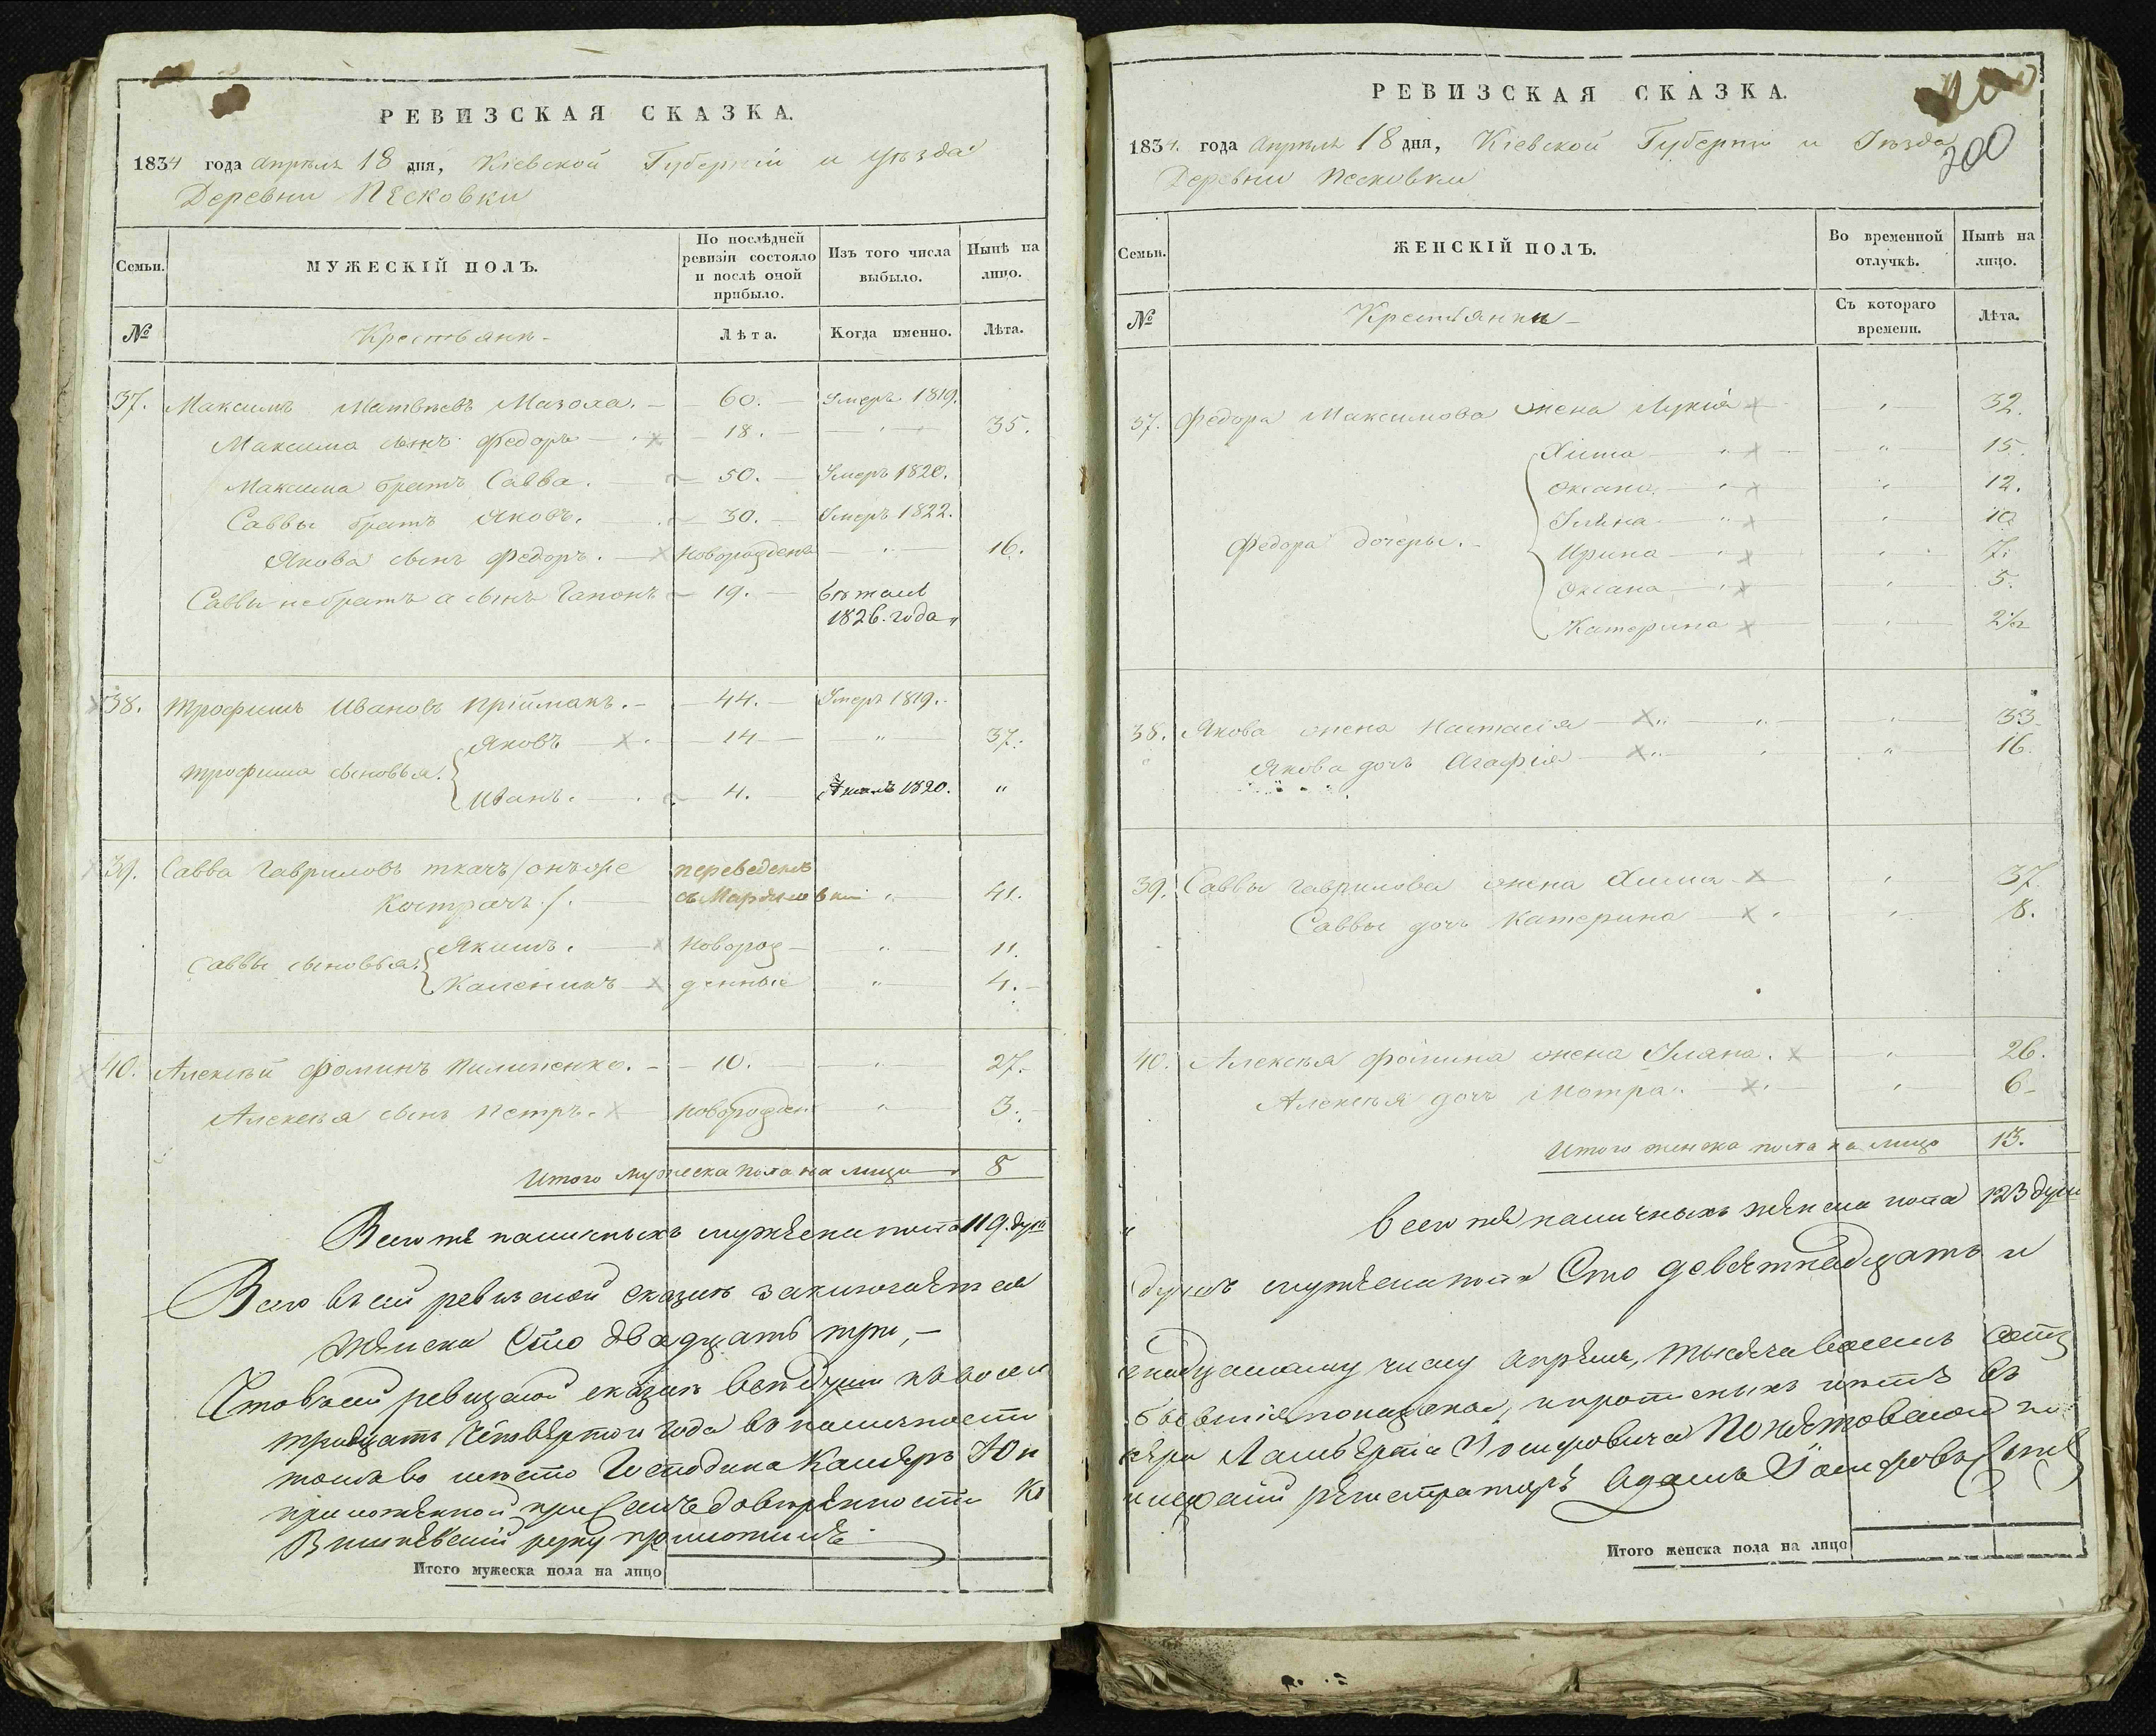 РЕВИЗСКАЯ СКАЗКА.
1834 года Апрѣля 18 дня, Кіевской Губерніи и уѣзда
Деревни Пѣсковки
Семьи.
МУЖЕСКІЙ ПОЛЪ.
По послѣдней ревизіи состояло и послѣ оной прибыло.
Изъ того числа выбыло.
Нынѣ на лицо.
№
Крестьянъ
Лѣта.
Когда именно.
Лѣта.
37. Максимъ Матвѣевъ Мазола. 60. Умеръ 1819.
Максима сынъ Федоръ 18. 35.
Максима братъ Савва. 50. Умеръ 1820.
Саввы братъ Яковъ. 30. Умеръ 1822.
Якова сынъ Федоръ. новорожденъ 16.
Саввы небратъ а сынъ Гапонъ 19.
1826. года
38. Трофимъ Ивановъ Пріймакъ. 44. Умеръ 1819.
Яковъ 14 37.
Трофима сыновья.
Иванъ. 4. 1820. "
39. Савва Гавриловъ ткачъ/онъ же переведенъ
Кострачъ/. 41.
Якимъ. Новорож 11.
Саввы сыновья.
Каленикъ денные 4.
40. Алексѣй Фоминъ Пилипенко. 10. 27.
Алексѣя сынъ Петръ. новорожден 3.
Итого мужеска пола на лицо 8
Всего же наличныхъ мужеска пола 119. душъ
Всего въ сей ревизской сказкѣ заключается
женска сто двадцать три,
Что въ сей ревизской сказкѣ всѣ души къ восем
тридцать четвертого года въ наличности
Господина
приложенной при семъ довѣренности
руку приложилъ
Итого мужеска пола на лицо
РЕВИЗСКАЯ СКАЗКА.
200
1834. года Апрѣля 18 дня, Кіевской Губерніи и Уѣзда
Деревни Песковки
Семьи.
ЖЕНСКІЙ ПОЛЪ.
Во временной отлучкѣ.
Нынѣ на лицо.
№
Крестьянки
Съ котораго времени.
Лѣта.
37. Федора Максимова жена Лукія 32.
Хима 15.
Оксана 12.
10
Федора дочеры. Ирина 7.
Оксана 5.
Катерина 2½
38. Якова жена Настасія 33.
Якова дочь Агафія 16.
39. Саввы Гаврилова жена Хима 37.
Саввы дочь Катерина 8.
40. Алексѣя Фомина жена Уляна. 26.
Алексѣя дочь Мотра. 6
Итого женска пола на лицо 13.
Всего же наличныхъ женска пола 123 души
душъ мужеска пола Сто девятнадцать и
надцатому числу апрѣля, тысяча восемь сотъ
показаны, и прописныхъ нѣтъ
Понятовской
регистраторъ Адамъ
Итого женска пола на лицо